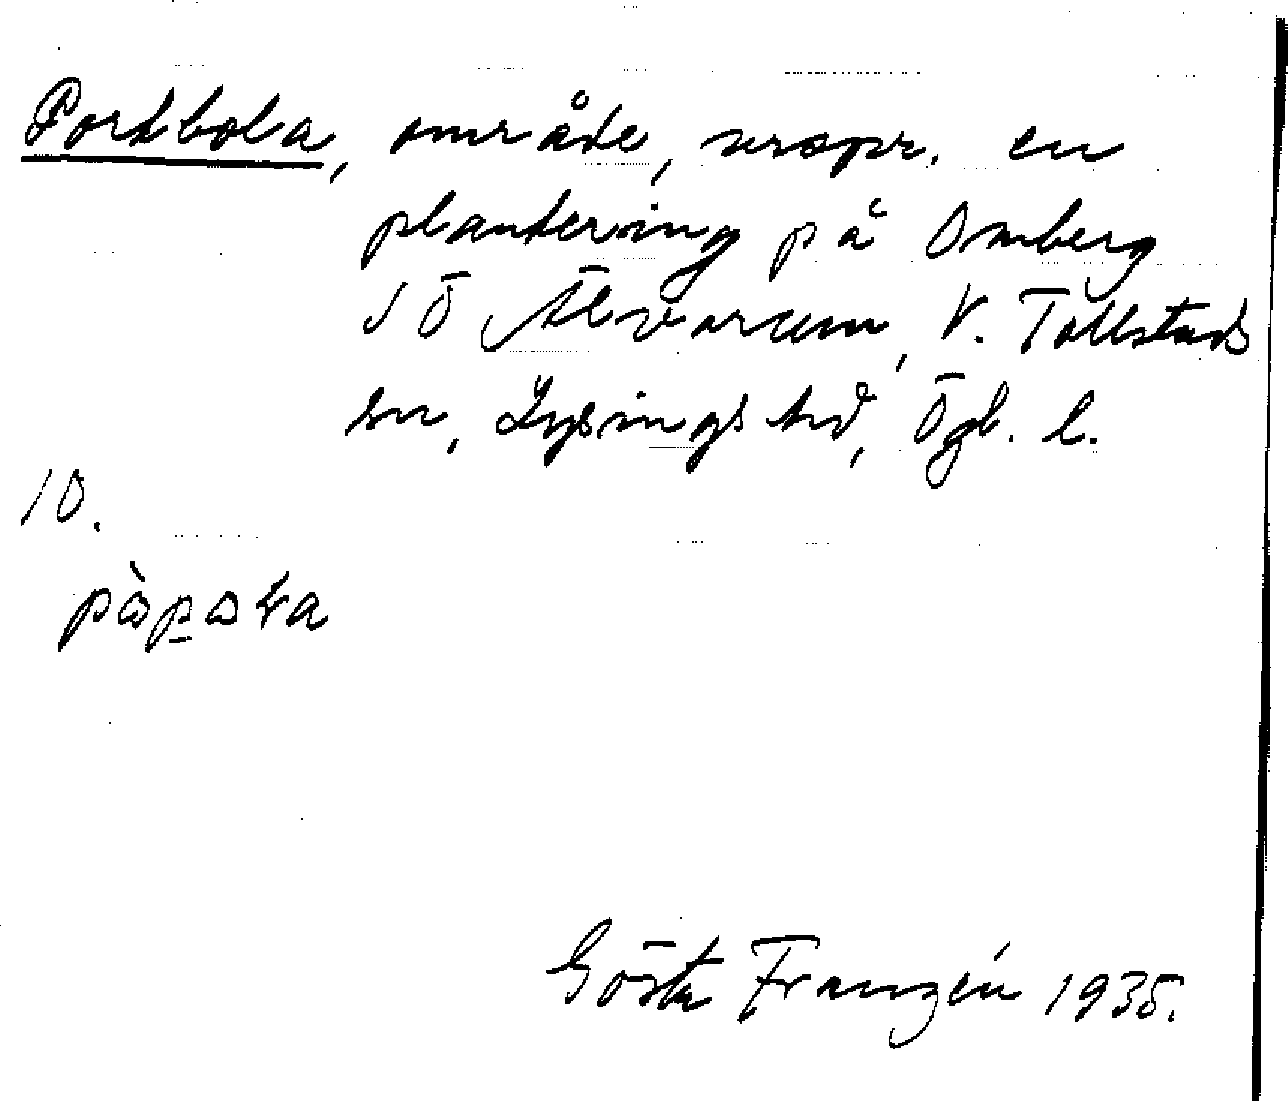 Portbola, område, urspr. en
plantering på Omberg
SÖ Älvarum, V. Tollstads
sn, Lysings hd, Ögl. l.
10.
Gösta Franzén 1935.